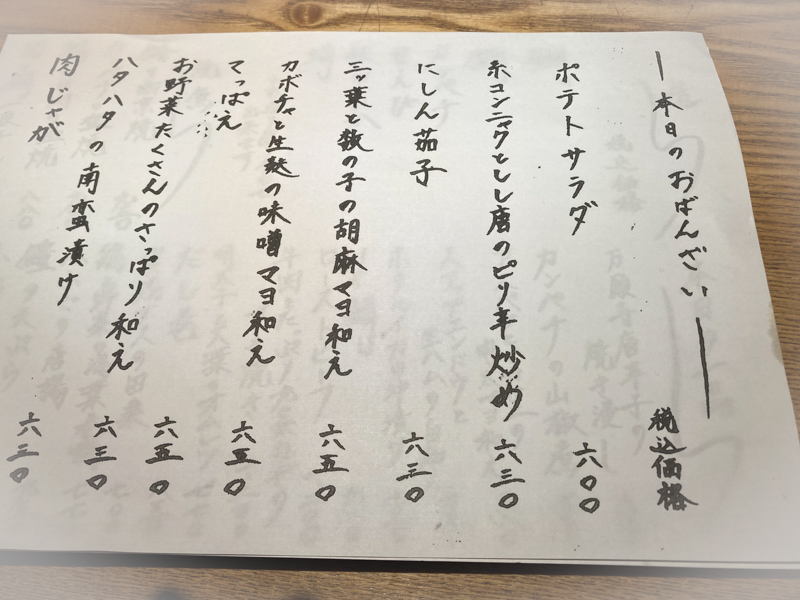 本日のおばんざい
税込価格
ポテトサラダ 六〇〇
糸コンニャクとしし唐のピリ辛炒め 六三〇
にしん茄子 六三〇
三ッ葉と数の子の胡麻マヨ和え 六五〇
カボチャと生麩の味噌マヨ和え 六五〇
てっぱえ
お野菜たくさんのさっぱり和え 六五〇
ハタハタの南蛮漬け 六三〇
肉じゃが 六三〇